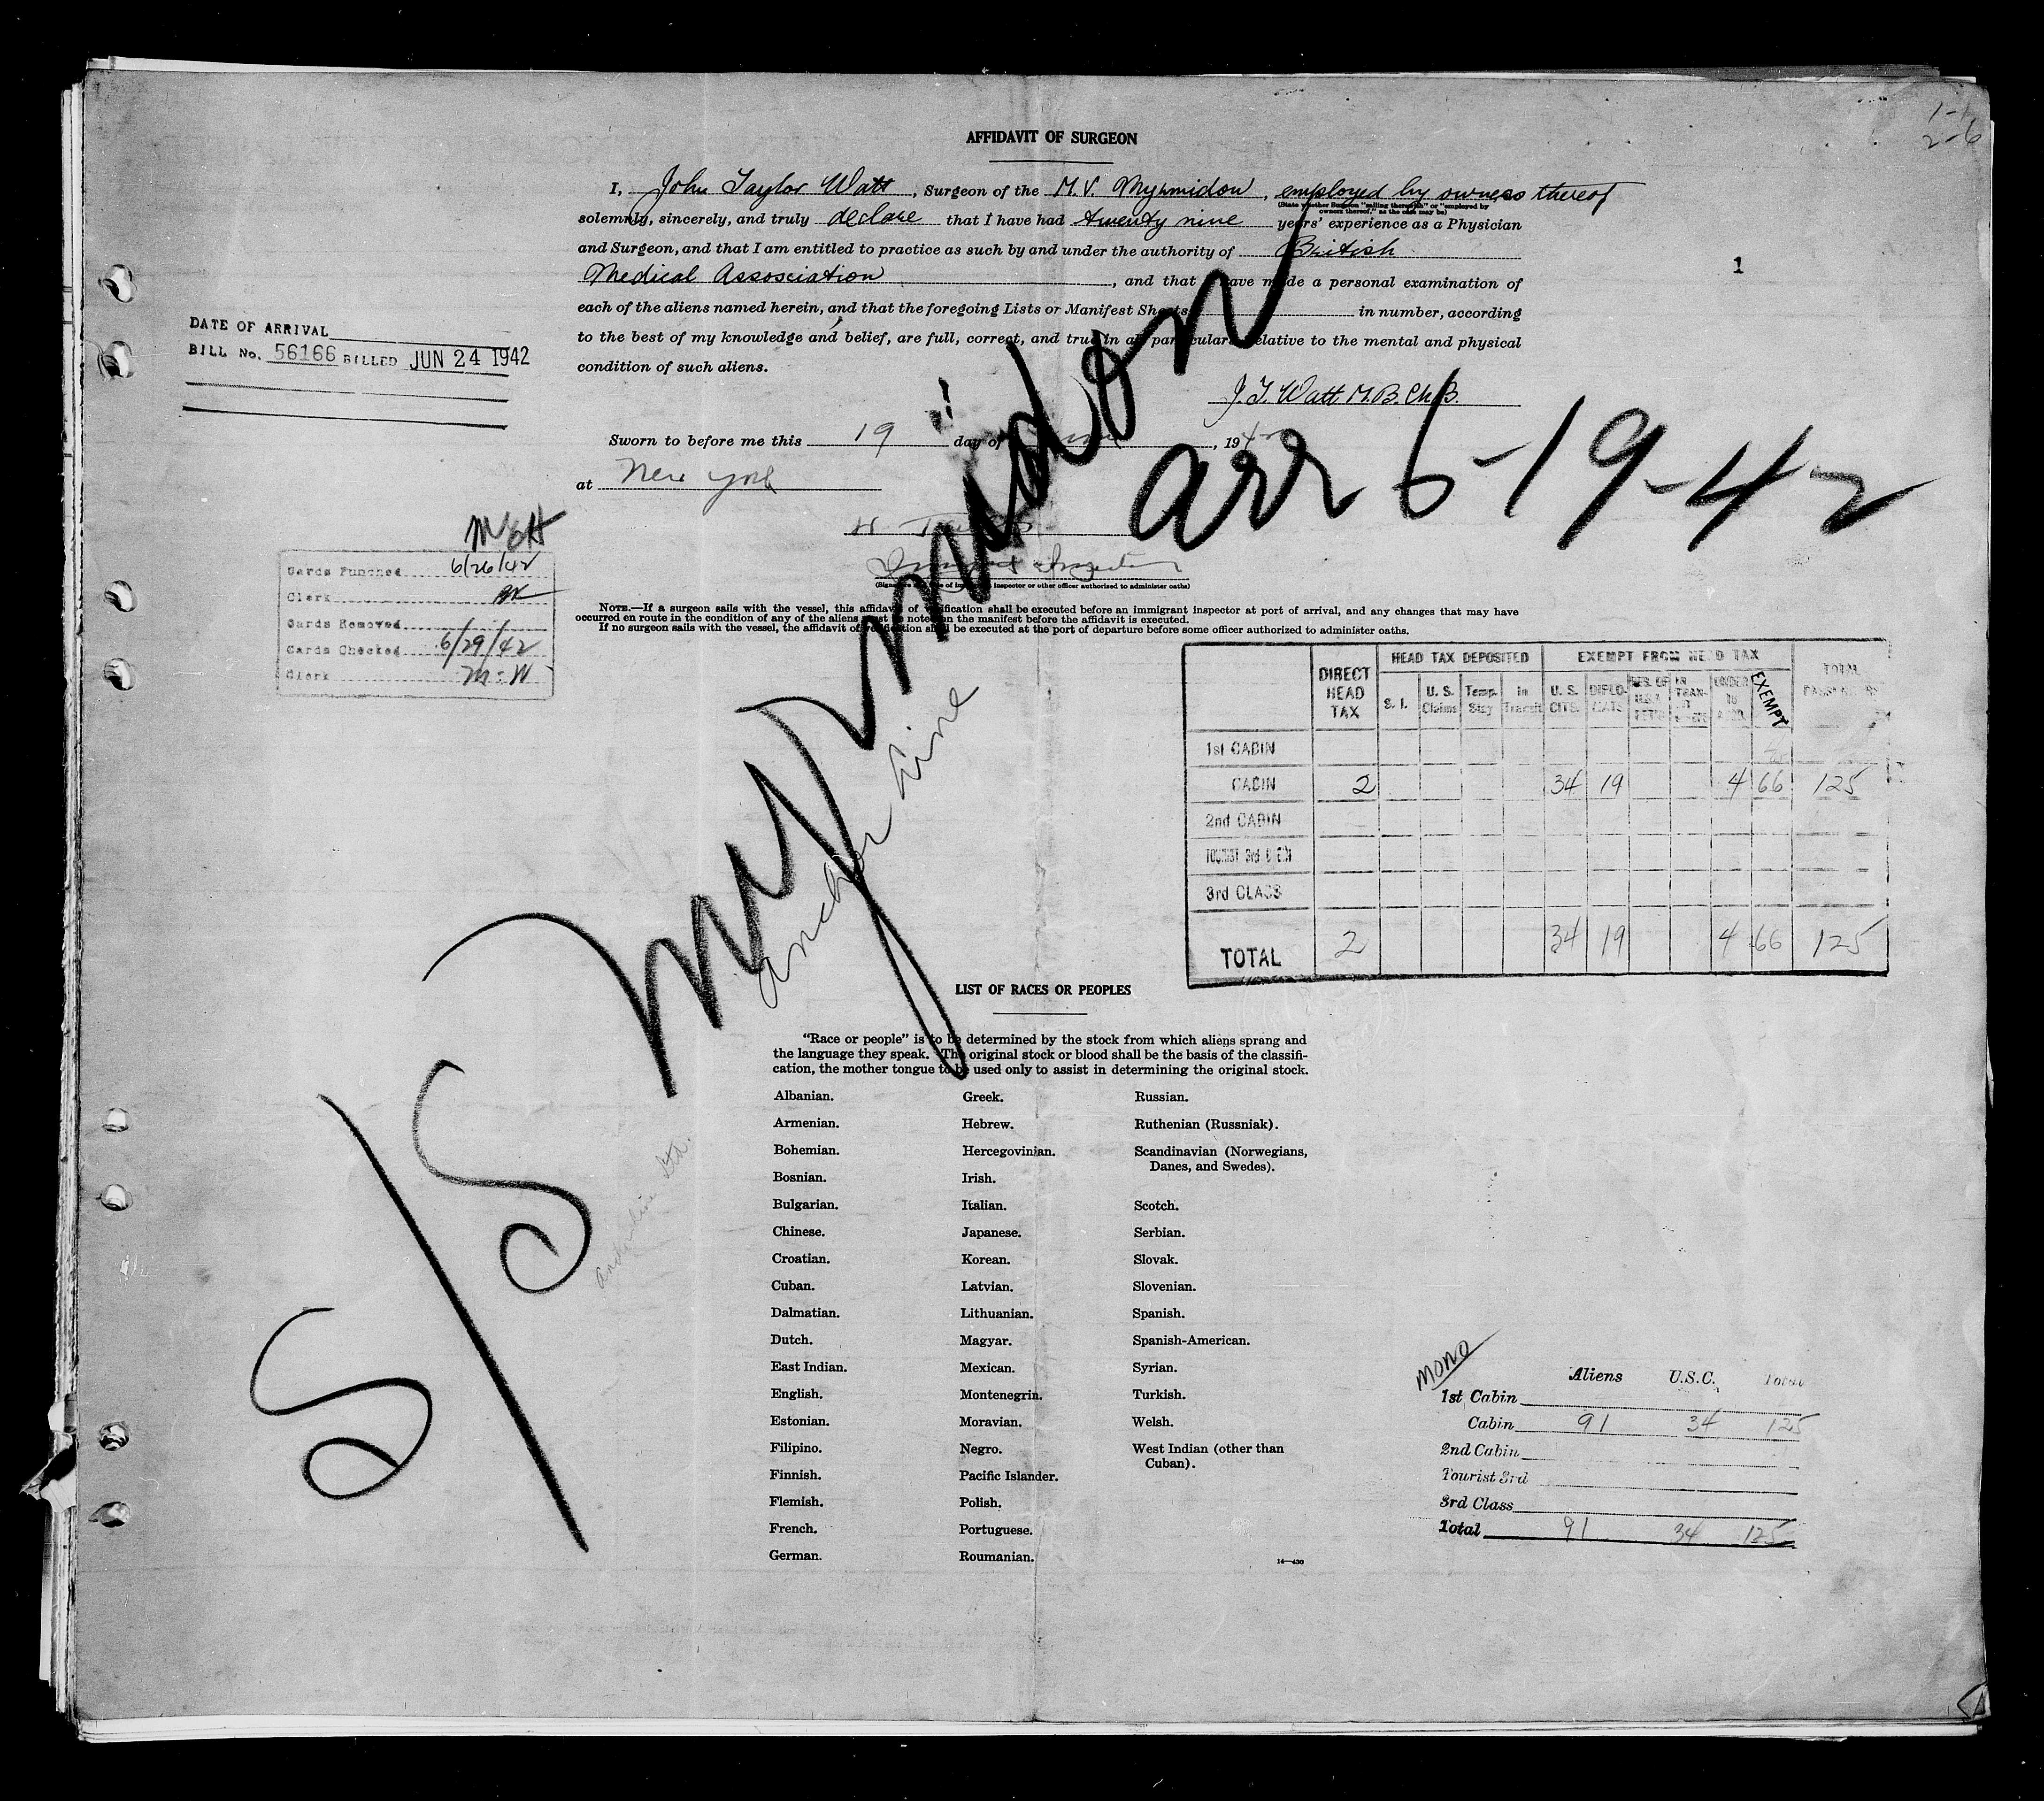 1-1
2-6
AFFIDAVIT OF SURGEON
I, John Taylor Watt, Surgeon of the M.V. Myrmidon, employed by owners thereof
(State whether Surgeon "sailing therewith" or "employed by
owners thereof," as the case may be)
solemnly, sincerely, and truly declare that I have had twenty nine years' experience as a Physician
and Surgeon, and that I am entitled to practice as such by and under the authority of British
Medical Association, and that I have made a personal examination of
1
each of the aliens named herein, and that the foregoing Lists or Manifest Sheets in number, according
to the best of my knowledge and belief, are full, correct, and true in all particulars relative to the mental and physical
condition of such aliens.
DATE OF ARRIVAL
BILL No. 56166 BILLED JUN 24 1942
J. T. Watt M.B. Ch.B.
Sworn to before me this 19 day of June, 1942
at New York
arr 6-19-42
Immigrant Inspector
(Signature and title of immigrant inspector or other officer authorized to administer oaths)
Cards Punched 6/26/42
Clerk
Cards Removed
Cards Checked 6/29/42
Clerk M.W
NOTE.—If a surgeon sails with the vessel, this affidavit of verification shall be executed before an immigrant inspector at port of arrival, and any changes that may have
occurred en route in the condition of any of the aliens must be noted on the manifest before the affidavit is executed.
If no surgeon sails with the vessel, the affidavit of verification shall be executed at the port of departure before some officer authorized to administer oaths.
S/S Myrmidon
Anchor Line
DIRECT HEAD TAX HEAD TAX DEPOSITED EXEMPT FROM HEAD TAX TOTAL PASSENGERS
S. I. U. S. Claims Temp. Stay In Transit U. S. CITS. DIPLO-MATS UNDER 16 EXEMPT
1st CABIN
CABIN 2 34 19 4 66 125
2nd CABIN
TOURIST 3rd CABIN
3rd CLASS
TOTAL 2 34 19 4 66 125
LIST OF RACES OR PEOPLES
"Race or people" is to be determined by the stock from which aliens sprang and
the language they speak. The original stock or blood shall be the basis of the classifi-
cation, the mother tongue to be used only to assist in determining the original stock.
Albanian.
Armenian.
Bohemian.
Bosnian.
Bulgarian.
Chinese.
Croatian.
Cuban.
Dalmatian.
Dutch.
East Indian.
English.
Estonian.
Filipino.
Finnish.
Flemish.
French.
German.
Greek.
Hebrew.
Hercegovinian.
Irish.
Italian.
Japanese.
Korean.
Latvian.
Lithuanian.
Magyar.
Mexican.
Montenegrin.
Moravian.
Negro.
Pacific Islander.
Polish.
Portuguese.
Roumanian.
Russian.
Ruthenian (Russniak).
Scandinavian (Norwegians,
Danes, and Swedes).
Scotch.
Serbian.
Slovak.
Slovenian.
Spanish.
Spanish-American.
Syrian.
Turkish.
Welsh.
West Indian (other than
Cuban).
14—430
mono
Aliens U.S.C. Total
1st Cabin
Cabin 91 34 125
2nd Cabin
Tourist 3rd
3rd Class
Total 91 34 125